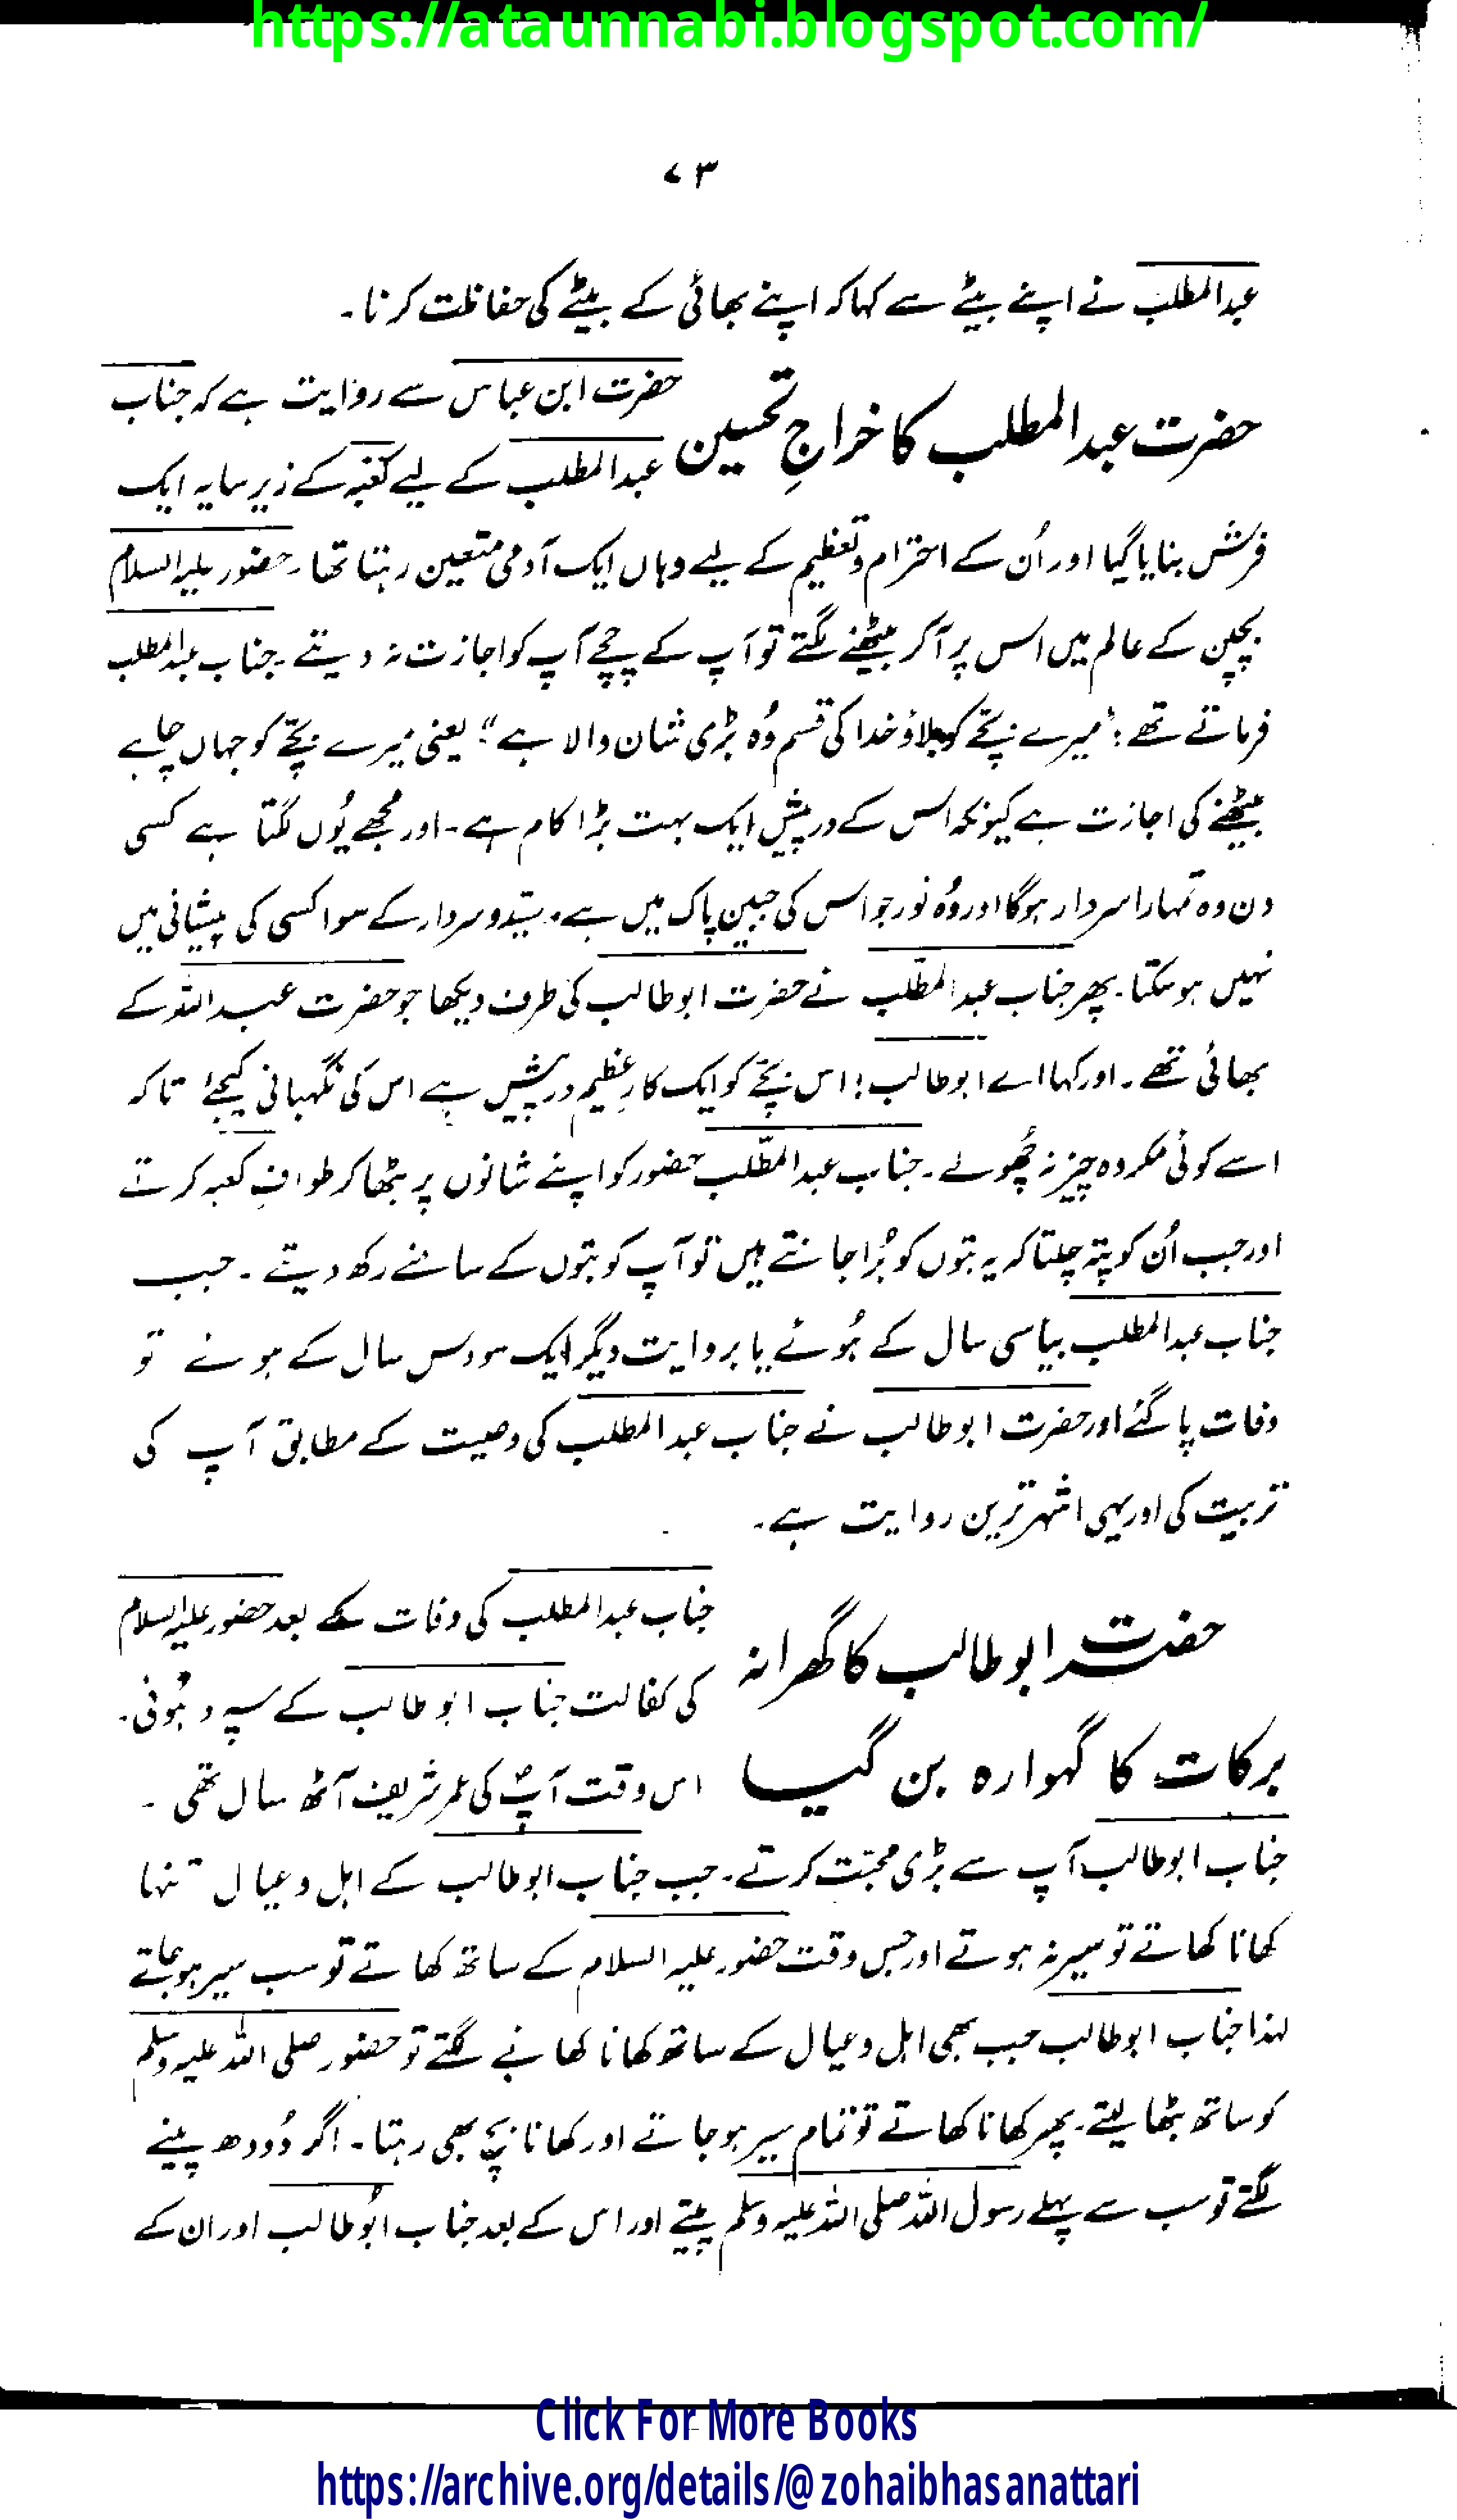 https://ataunnabi.blogspot.com/
۷۳
عبدالمطلب نے اپنے بیٹے سے کہا کہ اپنے بھائی کے بیٹے کی حفاظت کرنا۔
حضرت عبدالمطلب کا خراجِ تحسین
حضرت ابن عباس سے روایت ہے کہ جناب
عبدالمطلب کے لیے کعبہ کے زیر سایہ ایک
فرش بنایا گیا اور اُن کے احترام و تعظیم کے لیے وہاں ایک آدمی متعین رہتا تھا۔ حضور علیہ السلام
بچپن کے عالم میں اس پر آکر بیٹھنے لگتے تو آپ کے چچے آپ کو اجازت نہ دیتے۔ جناب عبدالمطلب
فرماتے تھے: "میرے بچے کو بلاؤ خدا کی قسم وُہ بڑی شان والا ہے"؛ یعنی میرے بچّے کو جہاں چاہے
بیٹھنے کی اجازت ہے کیونکہ اس کے درپیش ایک بہت بڑا کام ہے۔ اور مجھے یُوں لگتا ہے کسی
دن وہ تمہارا سردار ہوگا اور وُہ نور جو اس کی جبینِ پاک میں ہے۔ سیّد و سردار کے سوا کسی کی پیشانی میں
نہیں ہوسکتا۔ پھر جناب عبدالمطّلب نے حضرت ابوطالب کی طرف دیکھا جو حضرت عبداللہ کے
بھائی تھے۔ اور کہا اے ابوطالب! اس بچّے کو ایک کارِ عظیم درپیش ہے اس کی نگہبانی کیجئے تاکہ
اسے کوئی مکروہ چیز نہ چُھولے۔ جناب عبدالمطّلب حضور کو اپنے شانوں پر بٹھا کر طوافِ کعبہ کرتے
اور جب اُن کو پتہ چلتا کہ یہ بتوں کو بُرا جانتے ہیں تو آپ کو بتوں کے سامنے رکھ دیتے۔ جب
جناب عبدالمطلب بیاسی سال کے ہُوئے یا بروایت دیگر ایک سو دس سال کے ہوئے تو
وفات پاگئے اور حضرت ابوطالب نے جناب عبدالمطلب کی وصیت کے مطابق آپ کی
تربیت کی اور یہی اشہر ترین روایت ہے۔
حضرت ابوطالب کا گھرانہ
برکات کا گہوارہ بن گیا
جناب عبدالمطلب کی وفات کے بعد حضور علیہ السلام
کی کفالت جناب ابوطالب کے سپرد ہُوئی۔
اس وقت آپؐ کی عمر شریف آٹھ سال تھی۔
جناب ابوطالب آپ سے بڑی محبّت کرتے۔ جب جناب ابوطالب کے اہل و عیال تنہا
کھانا کھاتے تو سیر نہ ہوتے اور جس وقت حضور علیہ السلام کے ساتھ کھاتے تو سب سیر ہوجاتے
لہذا جناب ابوطالب جب بھی اہل و عیال کے ساتھ کھانا کھانے لگتے تو حضور صلی اللہ علیہ وسلم
کو ساتھ بٹھا لیتے۔ پھر کھانا کھاتے تو تمام سیر ہوجاتے اور کھانا بچ بھی رہتا۔ اگر دُودھ پینے
لگتے تو سب سے پہلے رسول اللہ صلی اللہ علیہ وسلم پیتے اور اس کے بعد جناب ابُوطالب اور ان کے
Click For More Books
https://archive.org/details/@zohaibhasanattari